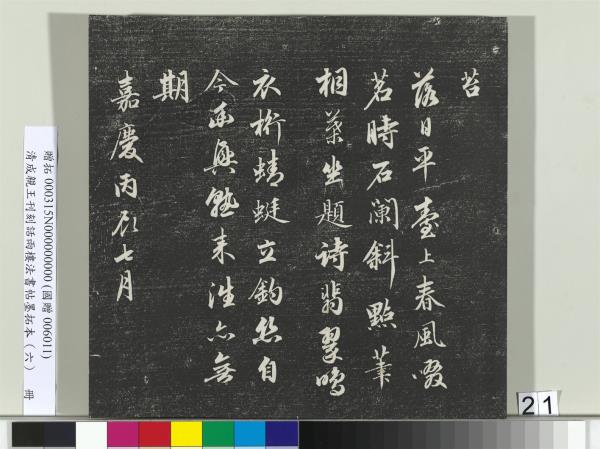 苔
落日平臺上春風啜
茗時石闌斜點筆
桐葉坐題詩翡翠鳴
衣桁蜻蜓立釣絲自
今幽興熟来往亦無
期
嘉慶丙辰七月
贈拓 000315N000000000 (國贈 006011)
清成親王刊刻話雨樓法書帖墨拓本(六) 冊
21